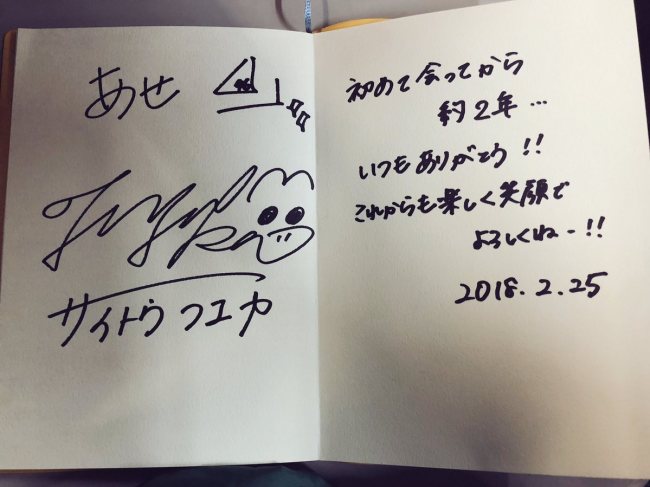 あせ
サイトウフユカ
初めて会ってから
約2年...
いつもありがとう!!
これからも楽しく笑顔で
よろしくねー!!
2018.2.25